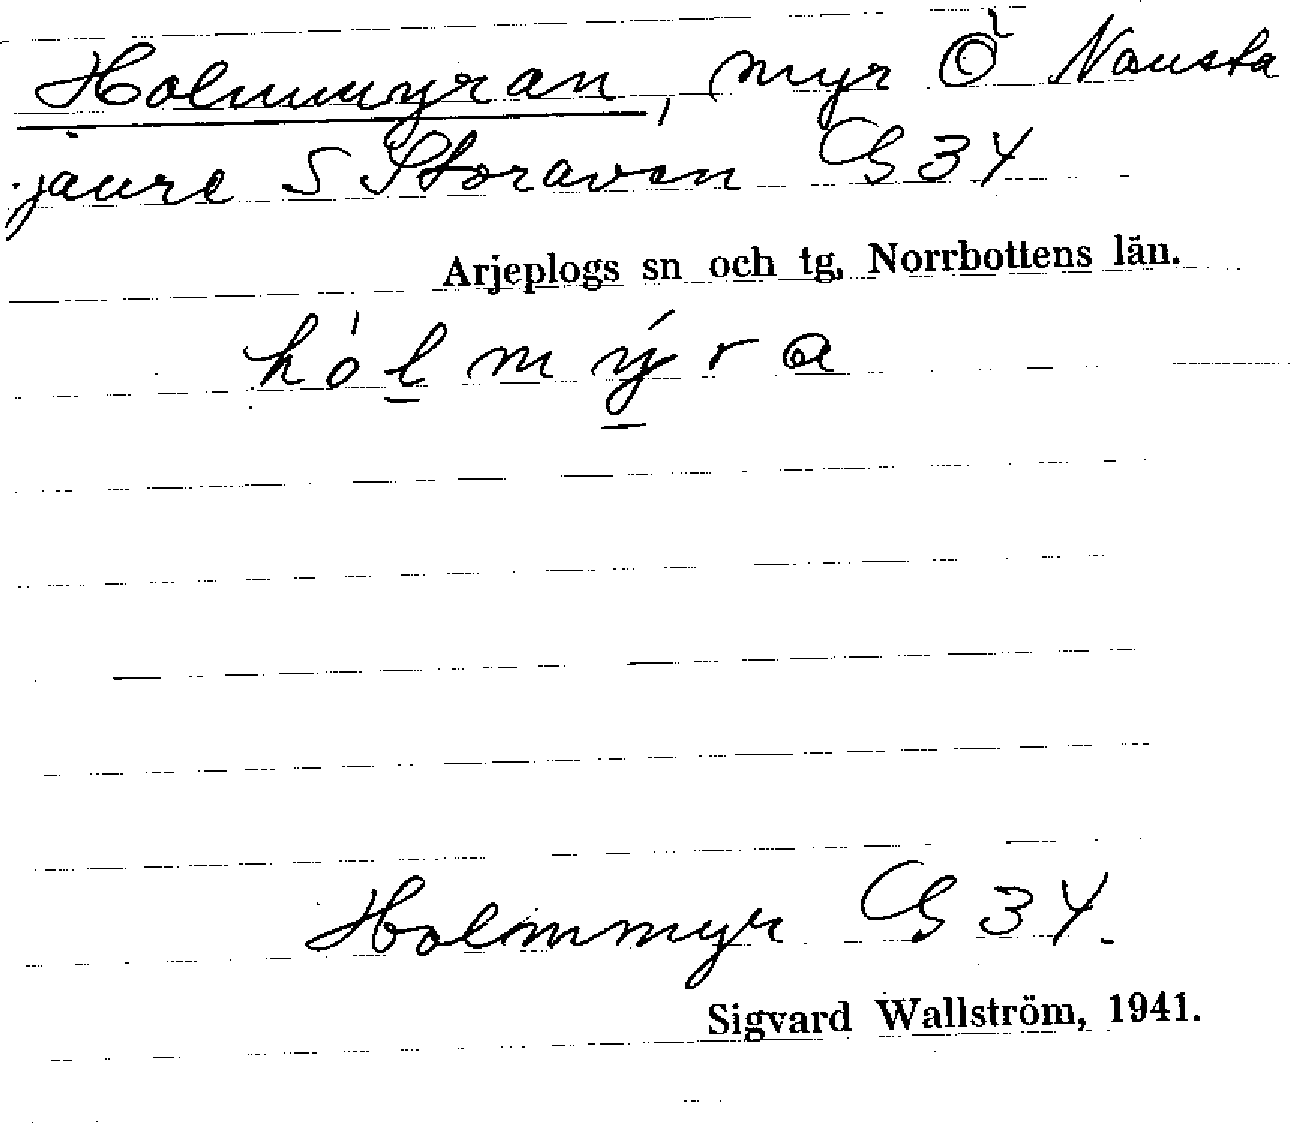 Holmmyran, myr Ö Nausta
jaure S Storaven GS 34
Arjeplogs sn och tg, Norrbottens län.
hólmýra
Holmmyr GS 34.
Sigvard Wallström, 1941.